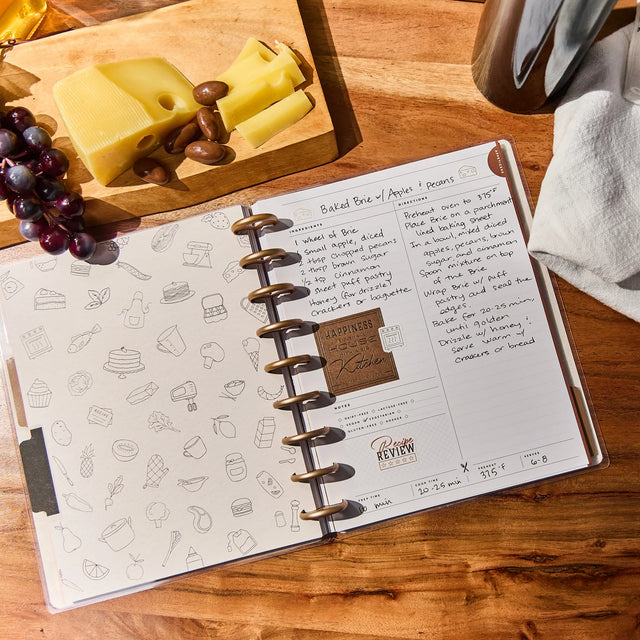 Baked Brie w/ Apples & Pecans
INGREDIENTS
1 Wheel of Brie
1 small apple, diced
chopped pecans
brown sugar
cinnamon
1 sheet puff pastry
Honey (for drizzle)
Crackers or baguette
HAPPINESS
HOUSE
Kitchen
NOTES
DAIRY-FREE
LACTOSE-FREE
VEGAN
VEGETARIAN
GLUTEN-FREE
Recipe
REVIEW
DIRECTIONS
Preheat oven to 375°
Place Brie on a parchment
lined baking sheet
In a bowl, mixed diced
apples, pecans, brown
sugar, and cinnamon
Spoon mixture on top
of the Brie
Wrap Brie w/ puff
pastry and seal the
edges.
Bake for 20-25 min,
until golden
Drizzle w/ honey &
serve warm w/
crackers or bread
PREP TIME
10 min
COOK TIME
20-25 min
PREHEAT
375°F
SERVES
6-8